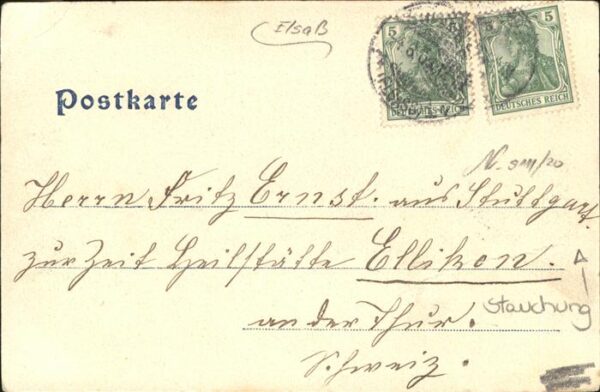 Elsaß
5
5
DEUTSCHES REICH
DEUTSCHES REICH
Postkarte
Herrn Fritz Ernst. aus Stuttgart.
zur Zeit Heilstätte Ellikon.
an der Thur.
Schweiz.
Stauchung